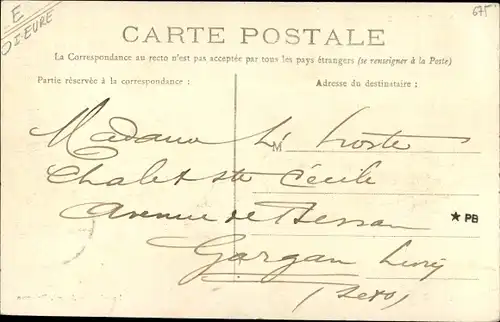 E
D I-EURE
675
CARTE POSTALE
La Correspondance au recto n'est pas acceptée par tous les pays étrangers (se renseigner à la Poste)
Partie réservée à la correspondance :
Adresse du destinataire :
M
Madame
Chalet Ste Cécile
Avenue de
★ PB
Gargan Livry